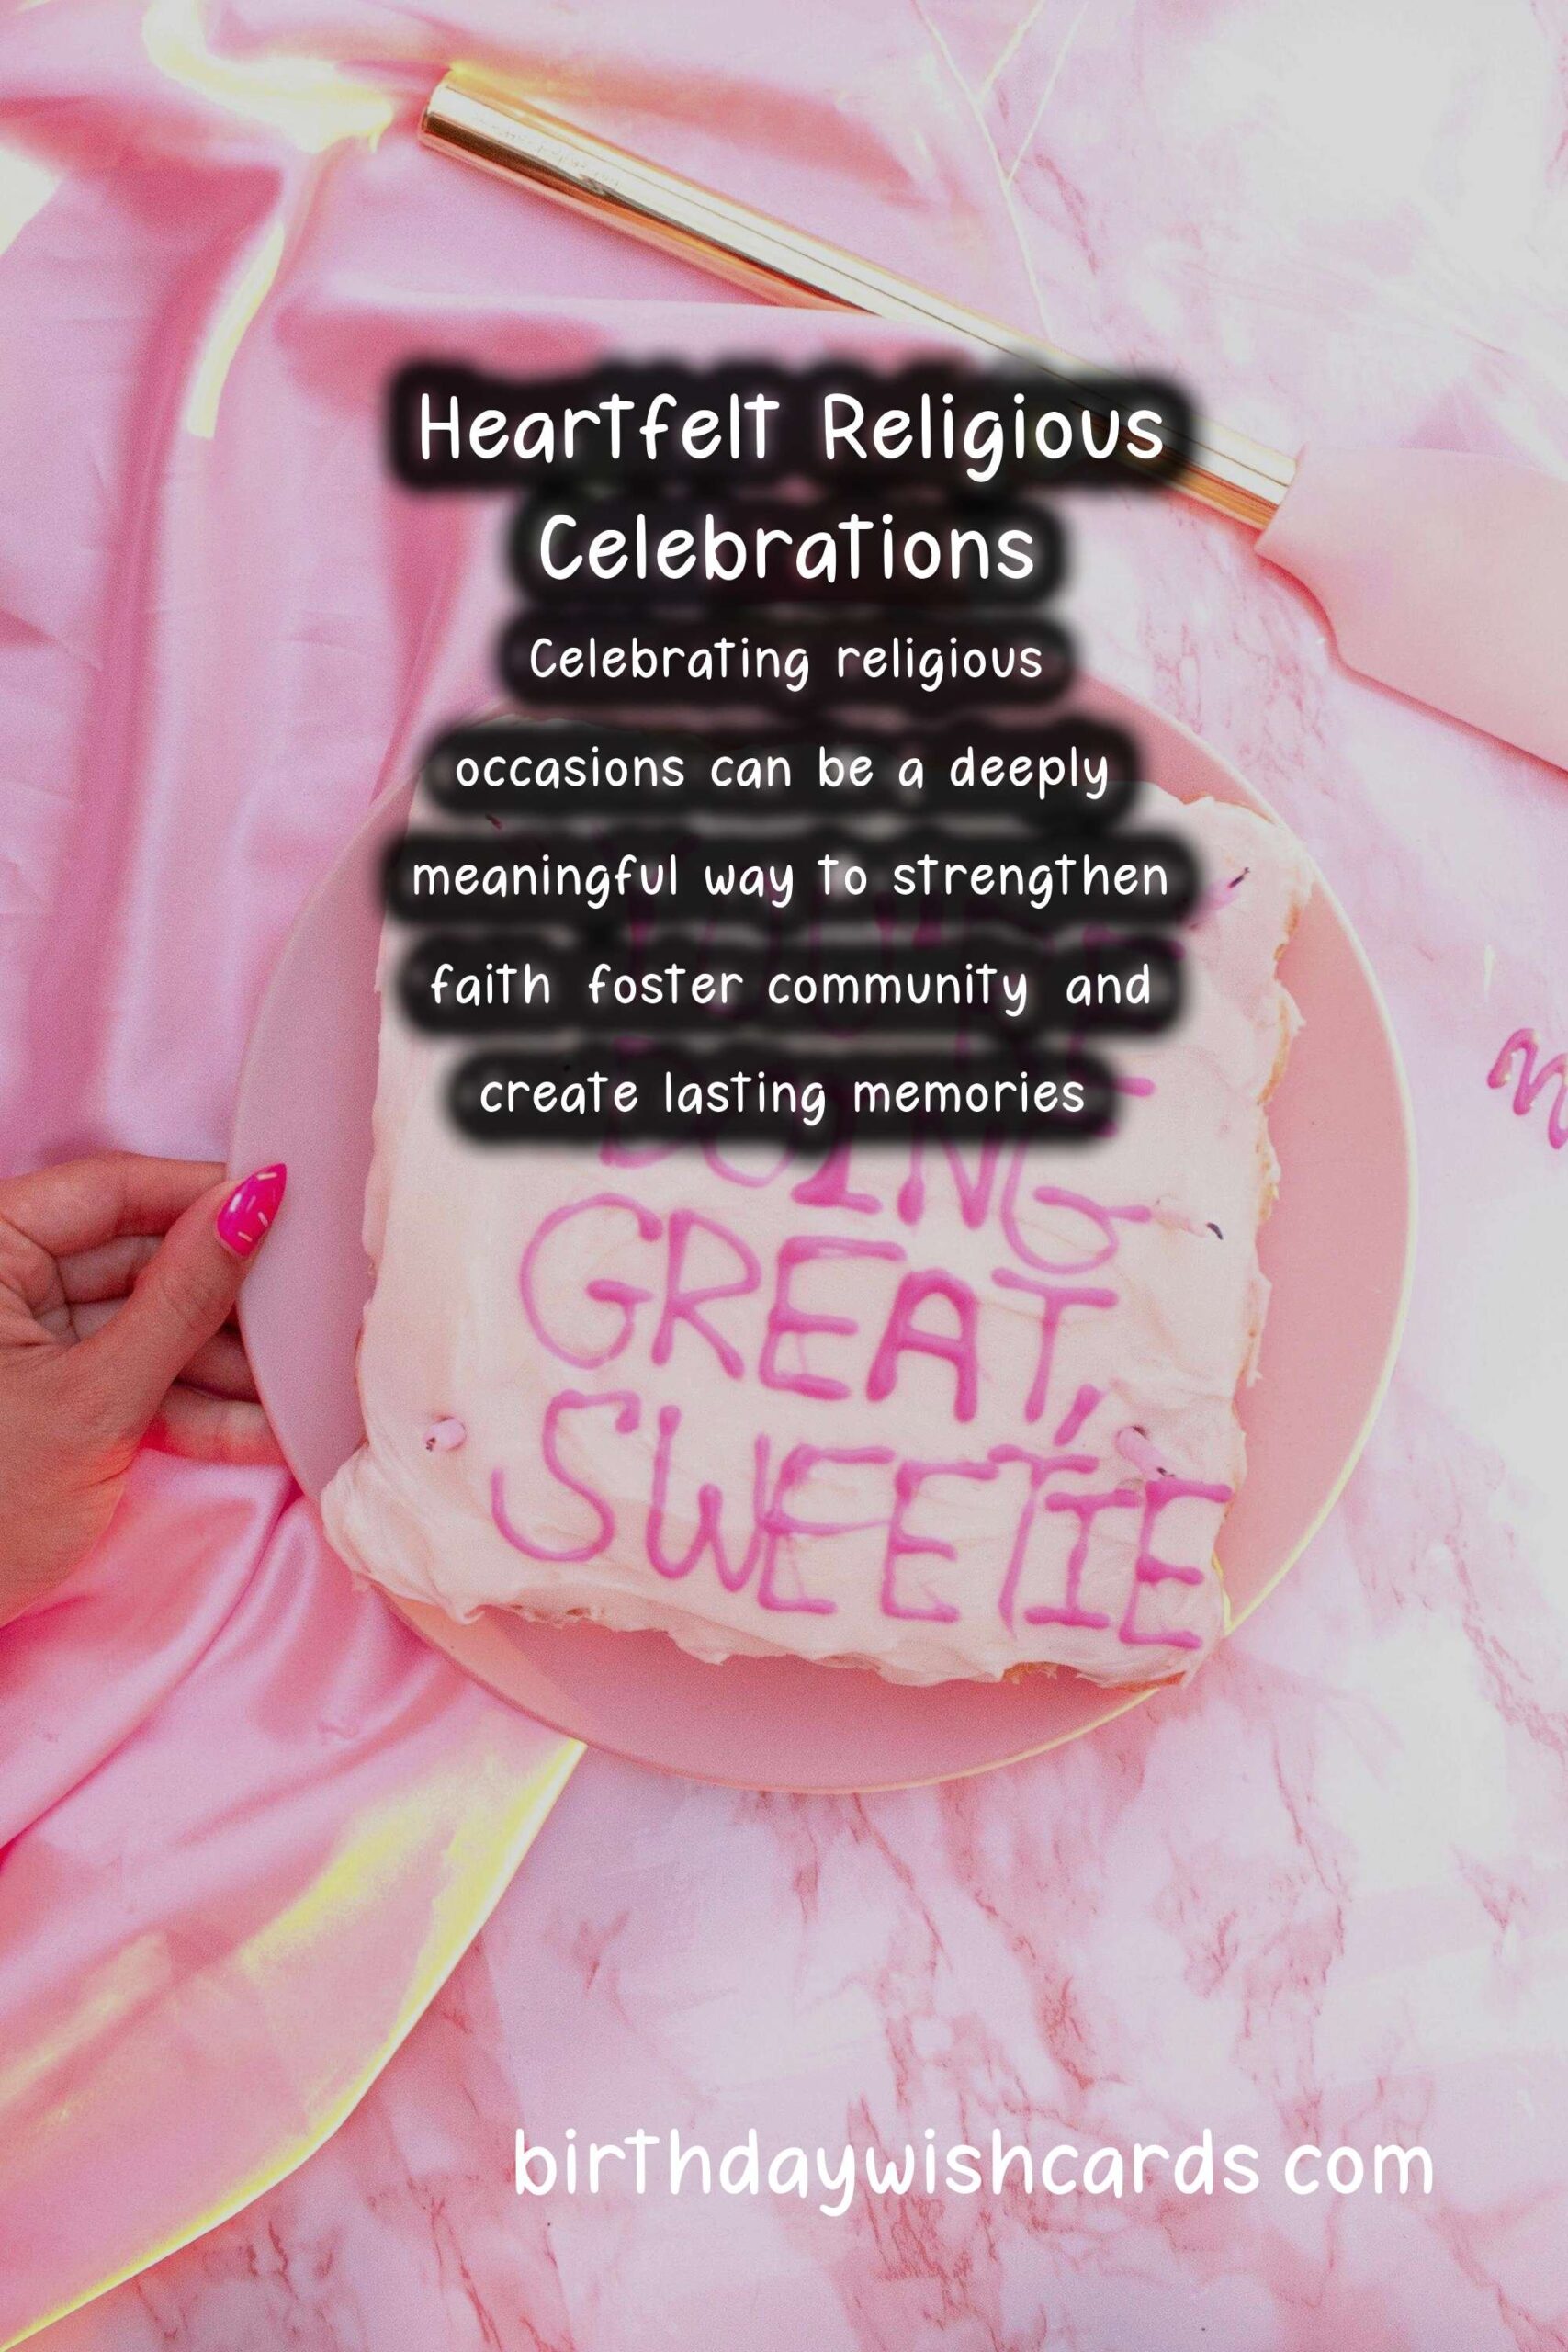 Heartfelt Religious
Celebrations
Celebrating religious
occasions can be a deeply
meaningful way to strengthen
faith foster community and
create lasting memories
DOING
GREAT,
SWEETIE
birthdaywishcards com